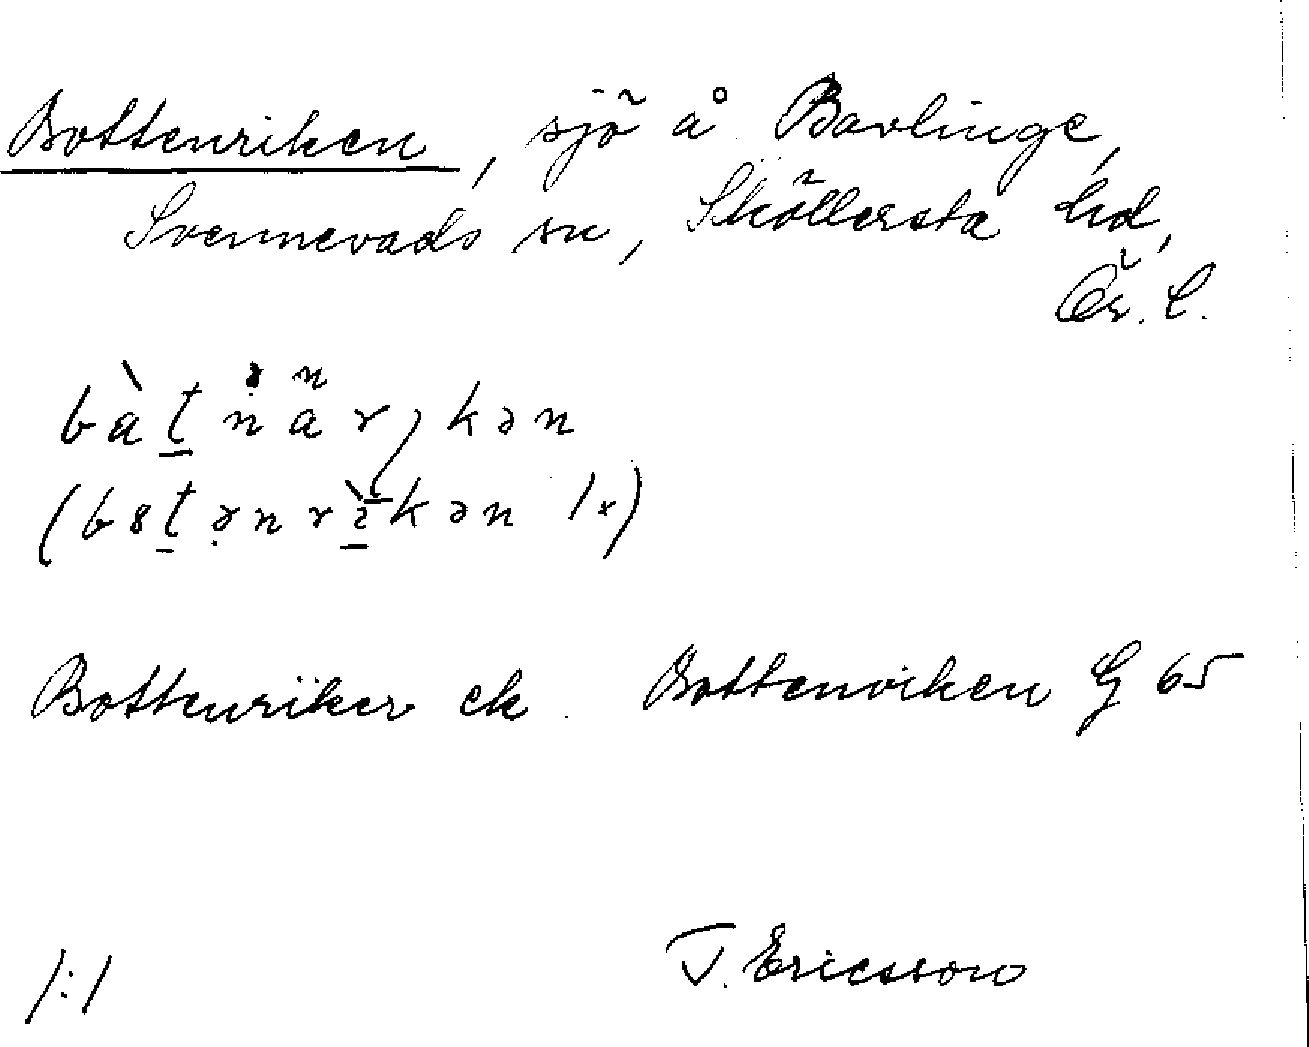 Bottenriken, sjö å Bavlinge,
Svennevads sn, Sköllersta hd,
Ör. l.
bàt nä r, kən
(bȣtənrìkən 1x)
Bottenriker ek. Bottenviken G 65
1:1 T. Ericsson